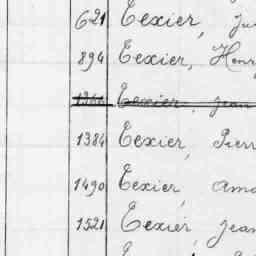 621 Texier, Ju
894 Texier, Henr
1366 Texier, Jean
1384 Texier, Pierr
1490 Texier, Ama
1521 Texier, Jean